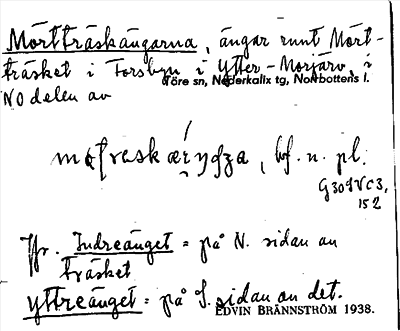 Mörtträskängarna, ängar runt Mört-
träsket i Forsbyn i Ytter-Morjärv, i
Töre sn, Nederkalix tg, Norrbottens l.
NO delen av
bf. n. pl.
G3091VC3,
152
Jfr. Indreänget = på N. sidan av
träsket
yttreänget = på S. sidan av det.
EDVIN BRÄNNSTRÖM 1938.